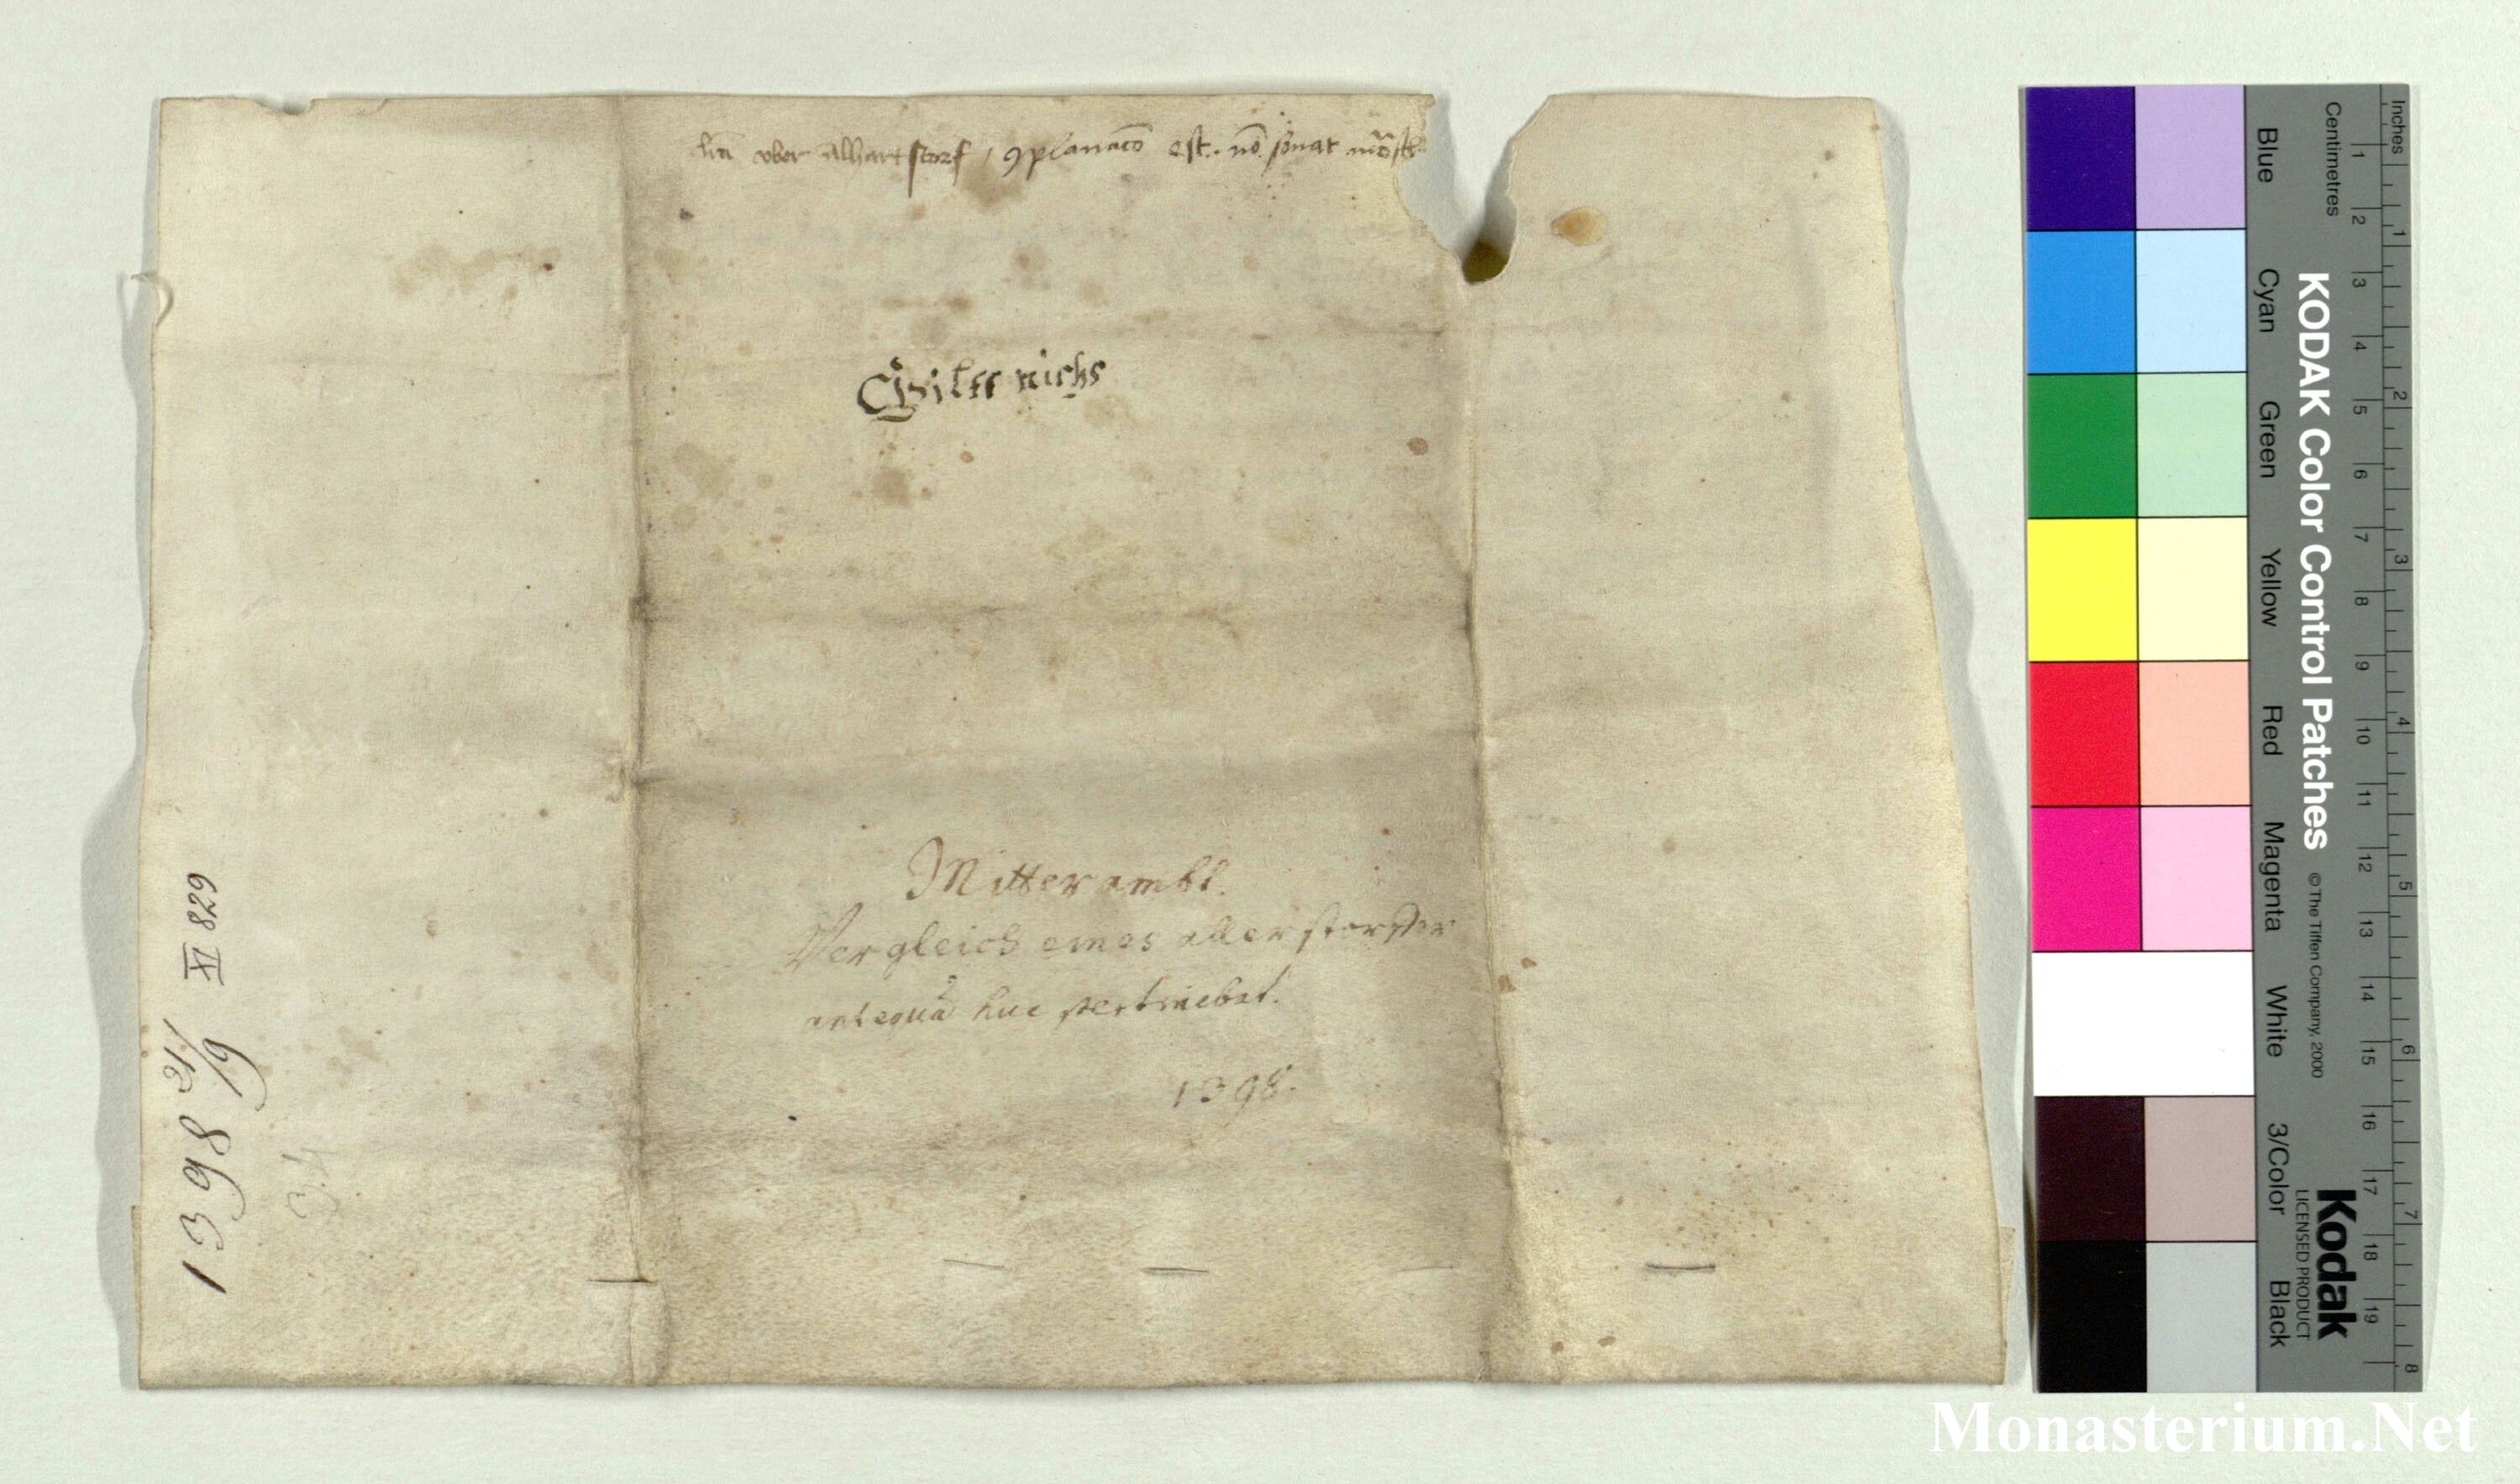 lra vber alhartstorf, 9planacō est. nō sonat
Gilt nichs
Mitter ambt.
Vergleich eines allerstorffer
antequā huc pertinebat.
1398.
1398 21/9 XI 829
34
KODAK Color Control Patches © The Tiffen Company, 2000
Kodak
LICENSED PRODUCT
Inches
Centimetres
1 2 3 4 5 6 7 8 9 10 11 12 13 14 15 16 17 18 19
1 2 3 4 5 6 7 8
Blue
Cyan
Green
Yellow
Red
Magenta
White
3/Color
Black
Monasterium.Net